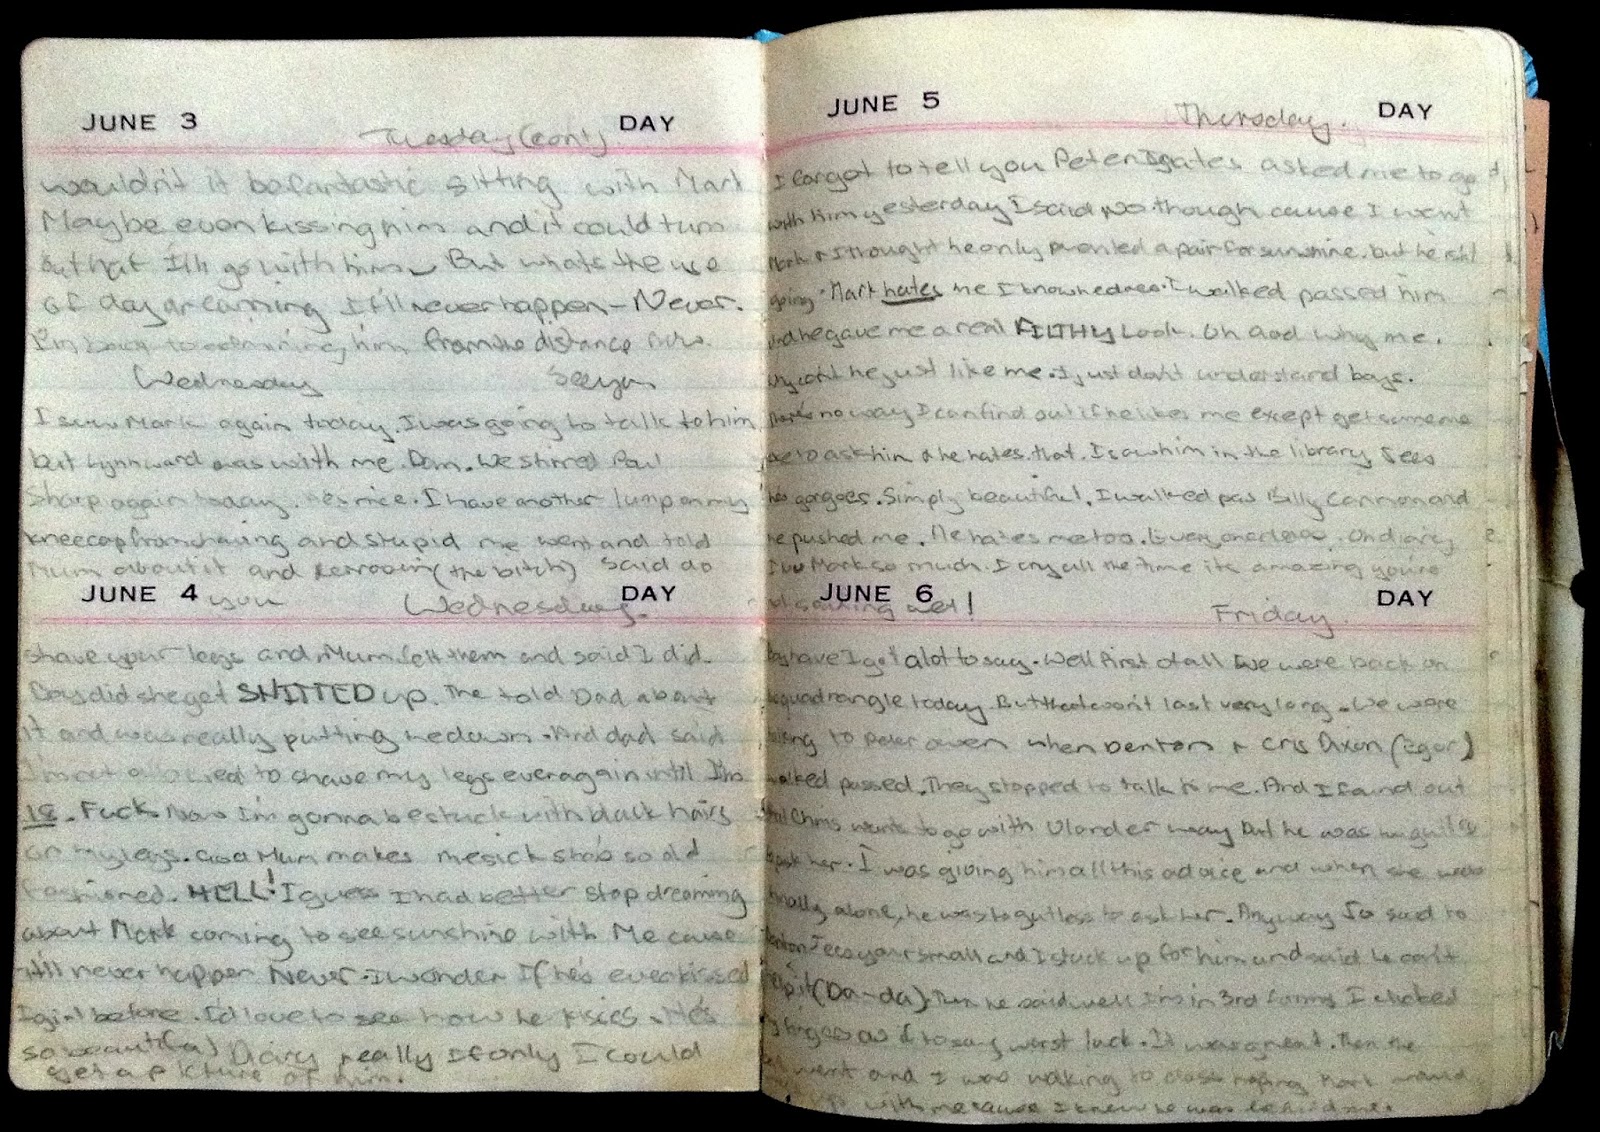 JUNE 3 Tuesday (cont). DAY
wouldn't it be fantastic sitting with Mark
Maybe even kissing him and it could turn
out that I'll go with him. But whats the use
of daydreaming It'll never happen - Never.
I'm back to admiring him from the distance now.
Wednesday See you
I saw Mark again today. I was going to talk to him
but Lynn ward was with me. Dam. We stirred Paul
Sharp again today. He's nice. I have another lump on my
kneecap from shaving and stupid me went and told
Mum about it and (the bitch) said do
JUNE 4 you Wednesday. DAY
shave your legs and Mum felt them and said I did.
Boy did she get SHITTED up. She told Dad about
it and was really putting me down. And dad said
I'm not allowed to shave my legs ever again until I'm
18. Fuck Now I'm gonna be stuck with black hairs
on my legs. God Mum makes me sick shes so old
fashioned. HELL! I guess I had better stop dreaming
about Mark coming to see sunshine with Me cause
it'll never happen Never. I wonder If he's ever kissed
a girl before. I'd love to see how he kisses. He's
so beautiful Diary really If only I could
get a picture of him.
JUNE 5 Thursday. DAY
I forgot to tell you Peter asked me to go
with him yesterday I said No though cause I want
Mark & I thought he only wanted a pair for sunshine. but he
going. Mark hates me I know he does. I walked passed him
and he gave me a real FILTHY Look. Oh God Why me.
Why can't he just like me. I just don't understand boys.
There's no way I can find out if he likes me except get someone
to ask him & he hates that. I saw him in the library Geez
he's gorgeos. Simply beautiful. I walked pas Billy Cannon and
he pushed me. He hates me too. Everyone does. Oh diary
I luv Mark so much. I cry all the time its amazing you're
not soaking wet!
JUNE 6 Friday. DAY
Boy have I got alot to say. Well first of all we were back on
quadrangle today. But that won't last very long. We were
talking to Peter owen when Denton & Cris Dixon (Egor)
walked passed. They stopped to talk to me. And I found out
that Chris wants to go with but he was
to ask her. I was giving him all this advice and when she was
finally alone, he was to gutless to ask her. Anyway So said to
Denton Jeeze your small and I stuck up for him and said he can't
help it (Da-da) Then he said well I'm in 3rd form I
my fingers as if to say worst luck. It was great. Then the
bell went and I was walking to class hoping Mark
with me cause I knew he was behind me.